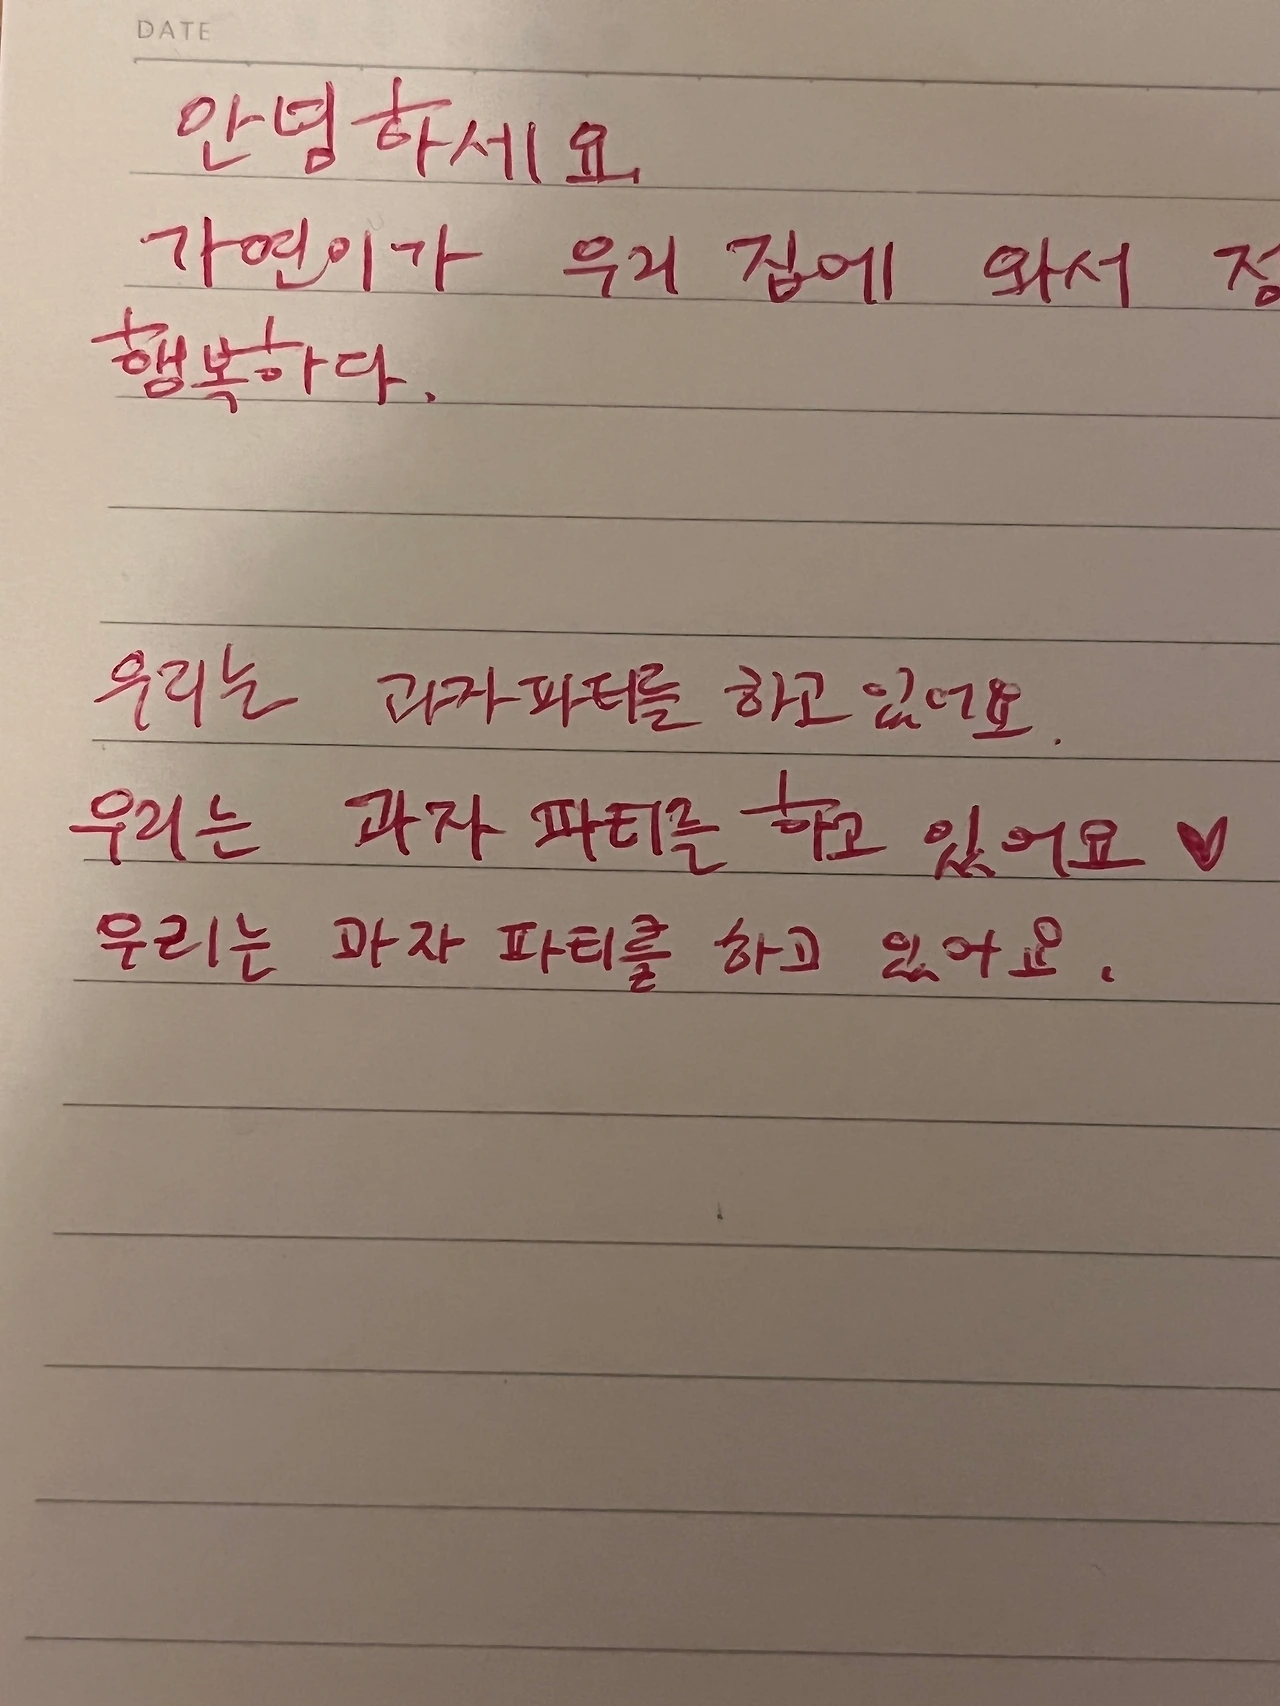 DATE
안녕하세요
가연이가 우리 집에 와서
행복하다.
우리는 과자파티를 하고 있어요.
우리는 과자 파티를 하고 있어요 ♥
우리는 과자 파티를 하고 있어요.